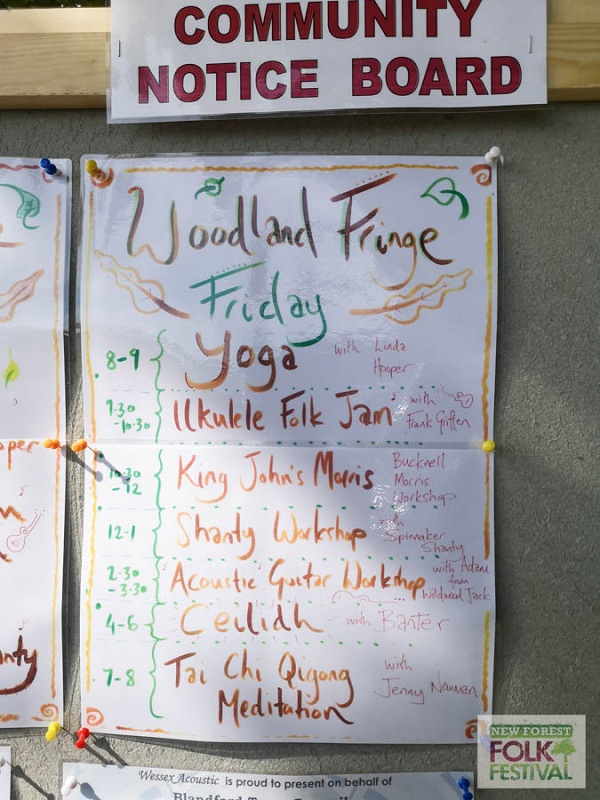 COMMUNITY
NOTICE BOARD
Woodland Fringe
Friday
8-9 Yoga with Linda
Hooper
9.30
-10:30 Ukulele Folk Jam with
Frank Griffen
10.30
-12 King John's Morris Bucknell
Morris
Workshop
12-1 Shanty Workshop with
Spinnaker
Shanty
2.30
-3.30 Acoustic Guitar Workshop with Adam
from
Wildwood Jack
4-6 Ceilidh with Banter
7-8 Tai Chi Qigong
Meditation with
Jenny Newman
oper
m
anty
Wessex Acoustic is proud to present on behalf of
Blandford
NEW FOREST
FOLK
FESTIVAL